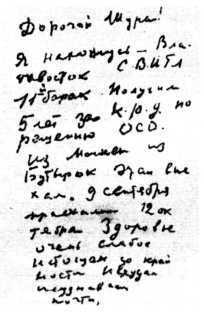 Дорогой Шура!
Я нахожусь — Вла-
дивосток СВИТЛ
11й барак. Получил
5 лет за К.р.д. по
решению ОСО.
Из Москвы из
Бутырок этап вые-
хал 9 сентября
приехали 12 ок-
тября Здоровье
очень слабое
истощен до край-
ности исхудал
неузнаваем
почти,